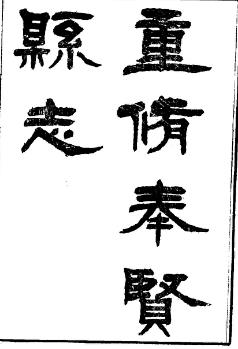 重脩奉賢
縣志